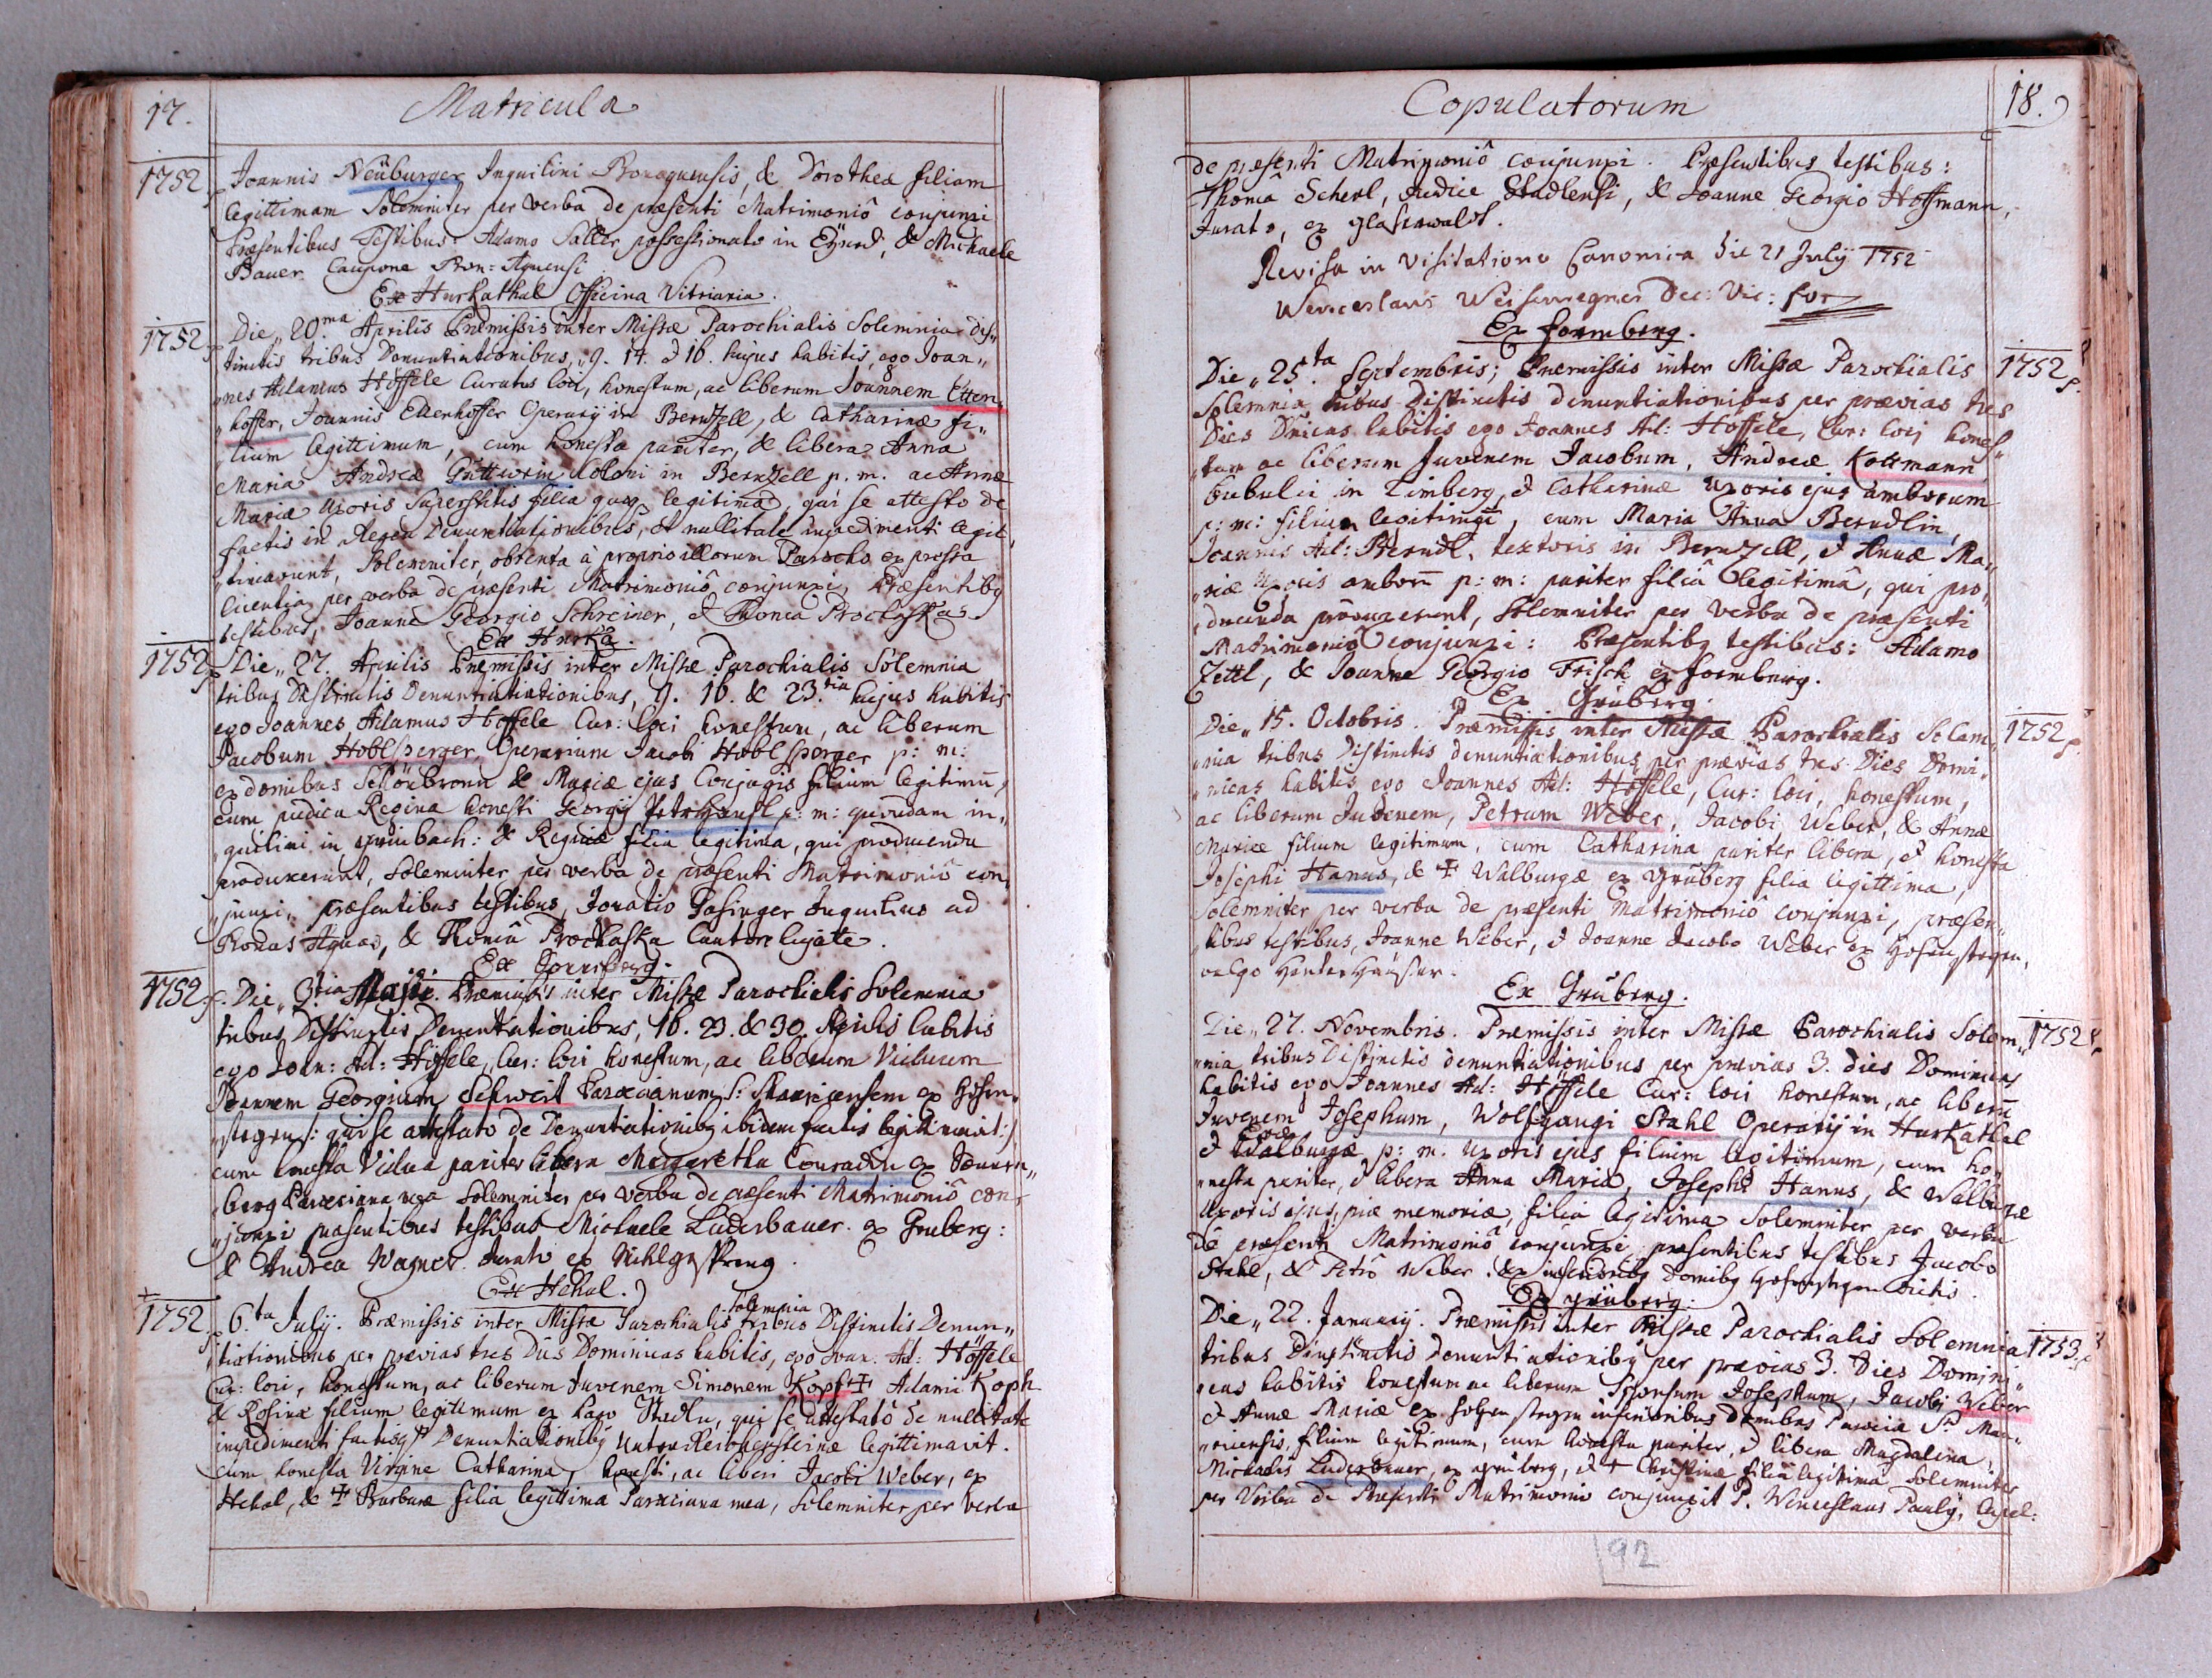 17.
Matricula
1752
Joannis Neüburger Inquilini Bonaquensis, & Dorotheæ filiam
legittimam Solemniter per verba de præsenti Matrimoniô conjunxi
Præsentibus Testibus: Adamo Saller possessionato in & Michaele
Bauer Caupone Bon: Aquensi
Ex Hurkathal Officina Vitriaria.
1752
Die 20.ma Aprilis Præmissis inter Missæ Parochialis Solemnia dis„
tinctis tribus Denuntiationibus, 9. 14. & 16. hujus habitis, ego Joan„
„nes Adamus Höffele Curatus loci, honestum, ac liberum Joannem Etten„
„hoffer, Joannis Ettenhoffer Operarij in Bernzell, & Catharinæ fi„
„lium legittimum, cum honesta pariter, & libera Anna
Maria Andreæ Guttwein Coloni in Bernzell p. m. ac Annæ
Mariæ Uxoris Superstitis filia legitima, qui se attesto de
factis in Denuntiationibus, et nullitate impedimenti legit„
„timarunt, Solemniter, obtenta à proprio illorum Parocho expressa
licentia, per verba de præsenti Matrimoniô conjunxi, Præsentibq
testibus, Joanne Georgio Schreiner, & Thoma Prochaska.
Ex Hurka.
1752
Die 27. Aprilis Præmissis inter Missæ Parochialis Solemnia
tribus Distinctis Denuntiationibus, 9. 16. & 23.tia hujus habitis
ego Joannes Adamus Höffele Cur: loci honestum, ac liberum
Jacobum Hoblsperger, Operarium Jacobi Hoblsperger p: m:
ex domibus Schönbronn & Mariæ ejus Conjugis filium legitimū,
cum pudica Regina honesti Georgij p: m: quondam in„
quilini in & Reginæ filia legitima, qui producenda
produxerunt, Solemniter per verba de præsenti Matrimoniô con„
„junxi, præsentibus testibus, Ignatio Gasinger Inquilino ad
Bonas Aquas, & Thoma Prochaska Cantore hujate.
Ex
1752
Die 3tia Maji. Præmissis inter Missæ Parochialis Solemnia
tribus Distinctis Denuntiationibus, 16. 23. & 30. Aprilis habitis
ego Joan: Ad: Höffele, Cur: loci honestum, ac liberum Viduum
Joannem Georgium Schweit Paræcianum S: Mauricensem ex Gösen„
„stegen: qui se attestato de Denuntiationibq ibidem factis legitimavit:
cum honesta Vidua pariter libera Margaretha Conradin ex
„berg Paræciana mea Solemniter per verba de præsenti Matrimoniô con„
„junxi præsentibus testibus Michaele Luderbauer ex Gruberg:
& Andrea Wagner Jurato ex
Ex Hekal.
1752
6.ta Julij. Præmissis inter Missæ Parochialis Solemnia tribus Distinctis Denun„
tiationibus per prævias tres Dies Dominicas habitis, ego Joan: Ad: Höffele
Cur: loci, honestum, ac liberum Juvenem Simonem Kopf ✝ Adami Koph
& Rosinæ filium legitimum ex Pago Stadln, qui se attestatô de nullitate
impedimenti factisq Denuntiationibq Unterreichensteinæ legittimavit.
cum honesta Virgine Catharina, honesti, ac liberi Jacobi Weber, ex
Hekal, & ✝ Barbaræ filia legittima Paræciana mea, Solemniter per verba
Copulatorum
18.
de præsenti Matrimoniô conjunxi. Præsentibus testibus:
Thoma Scherl, Judice Stadlensi, & Joanne Georgio Hoffmann,
Jurato, ex Glaserwaldt.
Revisa in Visitatione Canonica die 21 July 1752
Wenceslaus Dec: Vic: for
Ex formberg.
1752
Die 25.ta Septembris; Præmissis inter Missæ Parochialis
Solemnia tribus Distinctis denuntiationibus per prævias tres
Dies Dnicas habitis ego Joannes Ad: Höffele, Cur: loci hones„
„tum ac liberum Juvenem Jacobum, Andreæ Kollmann
bubulci in Zimberg, & Catharinæ Uxoris ejus amborum
p: m: filium legitimū, cum Maria Anna Berndlin,
Joannis Ad: Berndl, textoris in Bernzell, & Annæ Ma„
„riæ Uxoris amborū p: m: pariter filiâ legitimâ, qui pro„
„ducenda produxerunt, Solemniter per verba de præsenti
Matrimoniô conjunxi: Præsentibq testibus: Adamo
Zettl, & Joanne Georgio Frisch ex formberg.
Ex Grüberg.
1752
Die 15. Octobris. Præmissis inter Missæ Parochialis Solem„
„nia tribus Distinctis denuntiationibus per prævias tres Dies Domi„
„nicas habitis, ego Joannes Ad: Höffele, Cur: loci, honestum,
ac liberum Juvenem, Petrum Weber, Jacobi Weber, & Annæ
Mariæ filium legitimum, cum Catharina pariter libera, & honesta
Josephi Hanus, & ✝ Walburgæ ex Grüberg filia legittima,
Solemniter per verba de præsenti Matrimoniô conjunxi, præsen„
tibus testibus, Joanne Weber, & Joanne Jacobo Weber ex Gösenstegen,
vulgo Hinterhäuser.
Ex Grüberg.
1752
Die 27. Novembris. Præmissis inter Missæ Parochialis Solem„
„nia tribus Distinctis denuntiationibus per prævias 3. dies Dominicas
habitis ego Joannes Ad: Höffele Cur: loci honestum, ac liberū
Juvenem Josephum, Wolfgangi Stahl Operarij in Hurkathal
& Walburgæ p: m. Uxoris ejus filium legitimum, cum ho„
„nesta pariter, & libera Anna Maria, Josephi Hanus, & Walburgæ
Uxoris ejus, piæ memoriæ, filia legitima Solemniter per verba
de præsenti Matrimoniô conjunxi præsentibus testibus Jacobo
Stahl, & Petrô Weber. ex inferioribq Domibq
Ex grüberg:
1753
Die 22. Januarij. Præmissis inter Missæ Parochialis Solemnia
tribus Distinctis denuntiationibq per prævias 3. Dies Domini„
„cas habitis honestum ac liberum Sponsum Josephum, Jacobi Weber
& Annæ Mariæ ex inferioribus domibus Paræciæ St Mau„
„riciensis, filium legitimum, cum honesta pariter, & libera Magdalena,
Michaelis Luderbauer, ex grüberg, & ✝ Christinæ filiâ legitimâ Solemniter
per Verba de Præsenti Matrimonio conjunxit P. Wenceslaus Pauly, Capel:
92